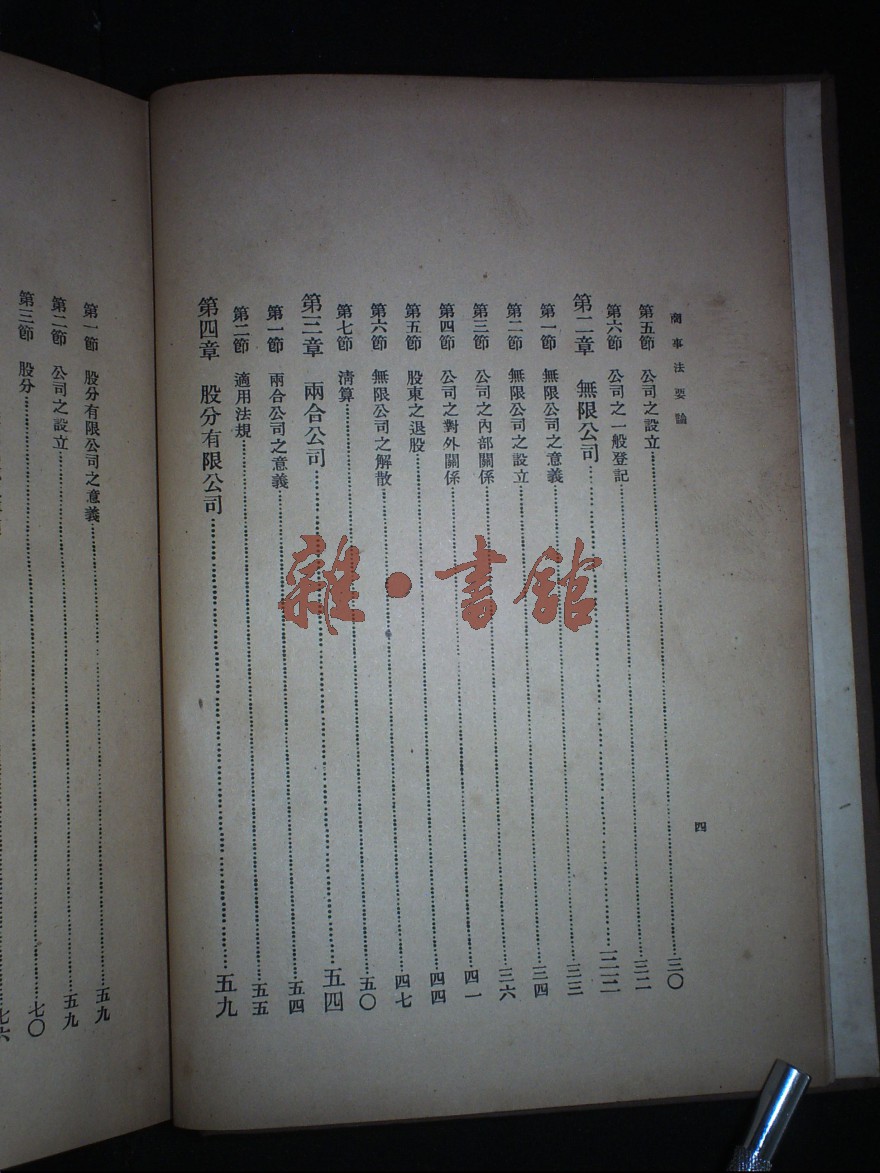 商事法要論
四
第五節 公司之設立……三〇
第六節 公司之一般登記……三二
第二章 無限公司……三三
第一節 無限公司之意義……三三
第二節 無限公司之設立……三四
第三節 公司之內部關係……三六
第四節 公司之對外關係……四一
第五節 股東之退股……四四
第六節 無限公司之解散……四七
第七節 清算……五〇
第三章 兩合公司……五四
第一節 兩合公司之意義……五四
第二節 適用法規……五五
第四章 股分有限公司……五九
第一節 股分有限公司之意義……五九
第二節 公司之設立……五九
第三節 股分……七〇
七六
雜·書館